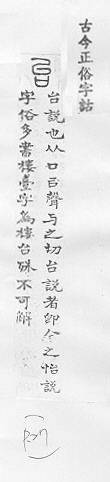 古今正俗字詁
台說也从口㠯聲与之切台說者卽今之怡說
字俗多書樓臺字爲樓台殊不可解